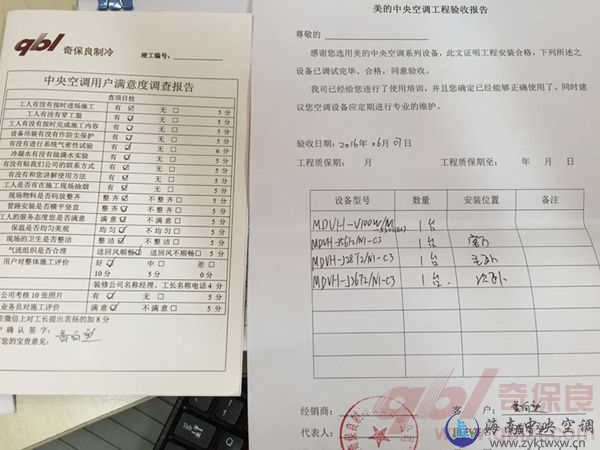 qbl 奇保良制冷
竣工编号:
中央空调用户满意度调查报告
查项目检
工人有没有按时进场施工 有 ☑ 无 □ 5分
工人有没有穿工服 有 ☑ 无 □ 5分
工人有没有按时完成施工内容 有 ☑ 无 □ 5分
设备吊装有没有作防尘保护 有 ☑ 无 □ 5分
有没有进行系统气密性试验 有 ☑ 无 □ 6分
冷凝水有没有做满水实验 有 ☑ 无 □ 5分
有没有贴我们公司的联系方式 有 ☑ 无 □ 5分
有没有和您讲解使用方法 有 ☑ 无 □ 5分
工人是否有在施工现场抽烟 有 无 5分
现场物料是否码放整齐 整齐 ☑ 不整齐 □ 5分
管路安装是否横平竖直 整齐 ☑ 不整齐 □ 5分
工人的服务态度您是否满意 满意 ☑ 不满意 □ 5分
保温是否均匀美观 均匀 ☑ 不均匀 □ 5分
现场的卫生是否整洁 整洁 ☑ 不整洁 □ 5分
气流组织是否合理 送回风顺畅 ☑ 送回风不顺畅 □ 5分
用户对整体施工评价 好 ☑ 中: □ 差: □
10分 5分 0分
装修公司名称经理、工长名称电话4分
公司考核10张照片 有 ☑ 无 □ 5分
业务员对施工评价 满意 ☑ 不满意 □ 5分
在微信上对工长提出表扬的加8分
户确认签字:
下您的宝贵意见:
美的中央空调工程验收报告
尊敬的
感谢您选用美的中央空调系列设备,此文证明工程安装合格,下列所述之
设备已调试完毕、合格,同意验收。
我司已经给您进行了使用培训,并且您确定已经能够正确使用了。同时建
议您空调设备应定期进行专业的维护。
验收日期: 2016年06月07日
工程质保期: 月 工程质保期至: 年 月 日
设备型号 数量 安装位置 备注
MDVH-V100W/M 1台
MDVH-J56T2/N1-C3 1台
MDVH-J28T2/N1-C3 1台
MDVH-J36T2/N1-C3 1台 次卧
经销商: 客户:
代表人:
qbl 奇保良
海奇中央空调
www.zyktwxw.cn